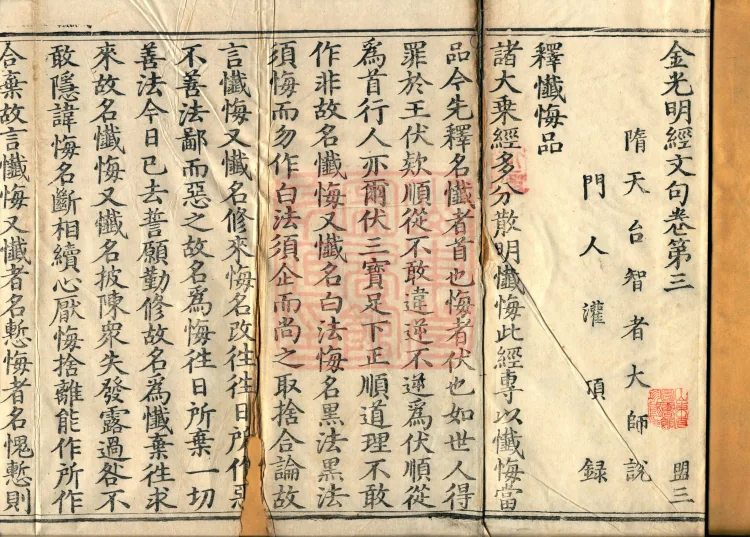 金光明經文句卷第三 盟三
隋天台智者大師說
門人灌頂錄
釋懺悔品
諸大乘經多分散明懺悔此經專以懺悔當
品今先釋名懺者首也悔者伏也如世人得
罪於王伏欵順從不敢違逆不逆爲伏順從
爲首行人亦爾伏三寶足下正順道理不敢
作非故名懺悔又懺名白法悔名黑法黑法
須悔而勿作白法須企而尚之取捨合論故
言懺悔又懺名修來悔名改往往日所作惡
不善法鄙而惡之故名爲悔往日所棄一切
善法今日已去誓願勤修故名爲懺棄往求
來故名懺悔又懺名披陳衆失發露過咎不
敢隱諱悔名斷相續心厭悔捨離能作所作
合棄故言懺悔又懺者名慙悔者名愧慙則